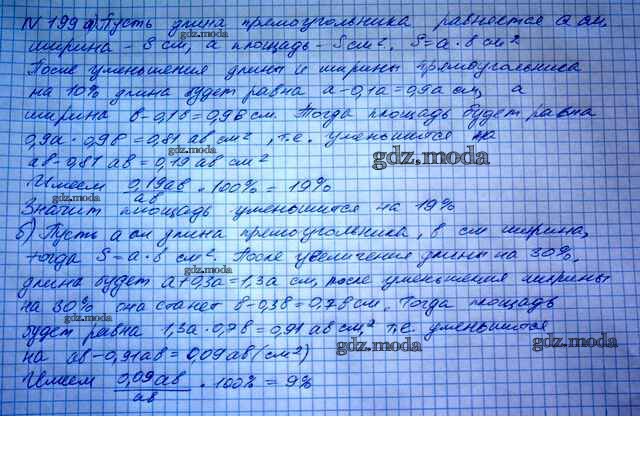 N 199 а) Пусть длина прямоугольника равняется a см,
ширина - в см, а площадь - S см², S=a·в см²
После уменьшения длины и ширины прямоугольника
gdz.moda
на 10% длина будет равна a-0,1a=0,9a см, а
ширина в-0,1в=0,9в см. Тогда площадь будет равна
0,9a·0,9в=0,81 aв см², т.е. уменьшится на
gdz.moda
aв-0,81 aв=0,19 aв см²
gdz.moda
Имеем 0,19aв/aв · 100% = 19%
gdz.moda
Значит площадь уменьшится на 19%
б) Пусть a см длина прямоугольника, в см ширина,
тогда S=a·в см². После увеличения длины на 30%,
gdz.moda
длина будет a+0,3a=1,3a см, после уменьшения ширины
gdz.moda
на 30% она станет в-0,3в=0,7в см. Тогда площадь
gdz.moda
будет равна 1,3a·0,7в=0,91 aв см² т.е. уменьшится
gdz.moda
gdz.moda
на aв-0,91aв=0,09aв (см²)
Имеем 0,09aв/aв · 100% = 9%